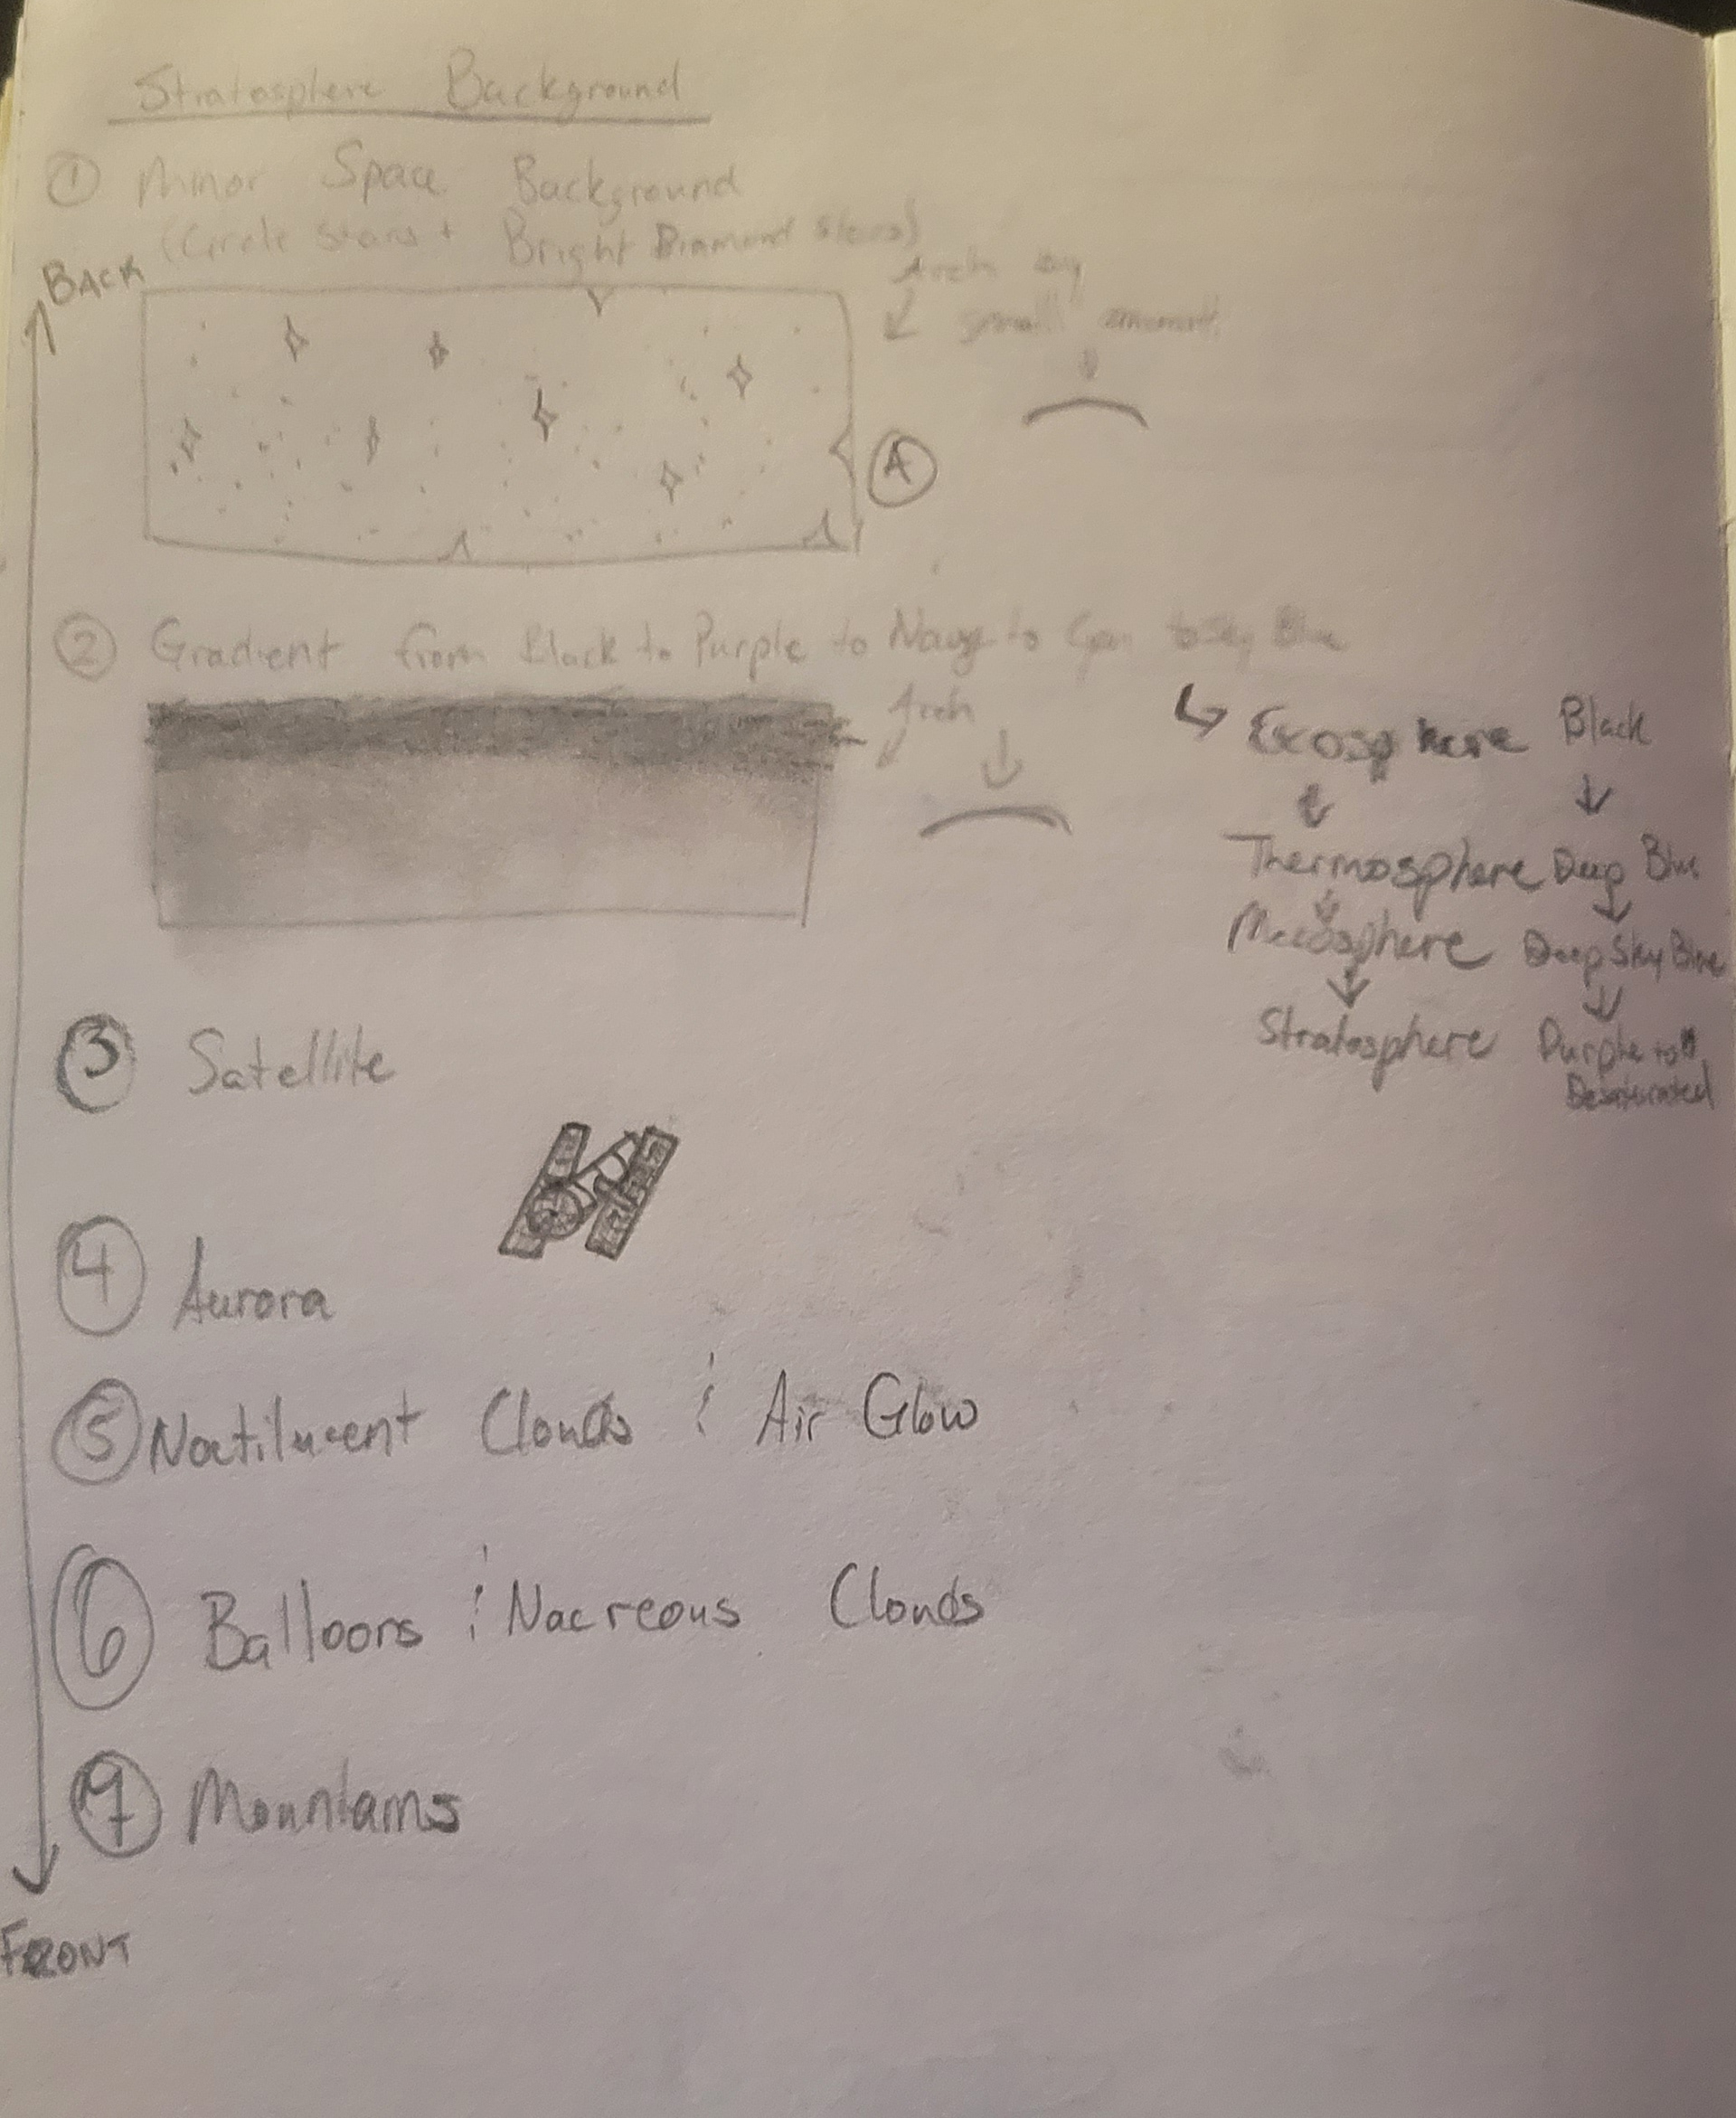 Stratosphere Background
① Minor Space Background
(Circle stars + Bright Diamond Stars)
BACK
Arch by
small amount
A
② Gradient from Black to Purple to Navy to Cyan to Sky Blue
Arch
Exosphere Black
Thermosphere Deep Blue
Mesosphere Deep Sky Blue
Stratosphere Purple to
Desaturated
③ Satellite
④ Aurora
⑤ Noctilucent Clouds & Air Glow
⑥ Balloons & Nacreous Clouds
⑦ Mountains
FRONT